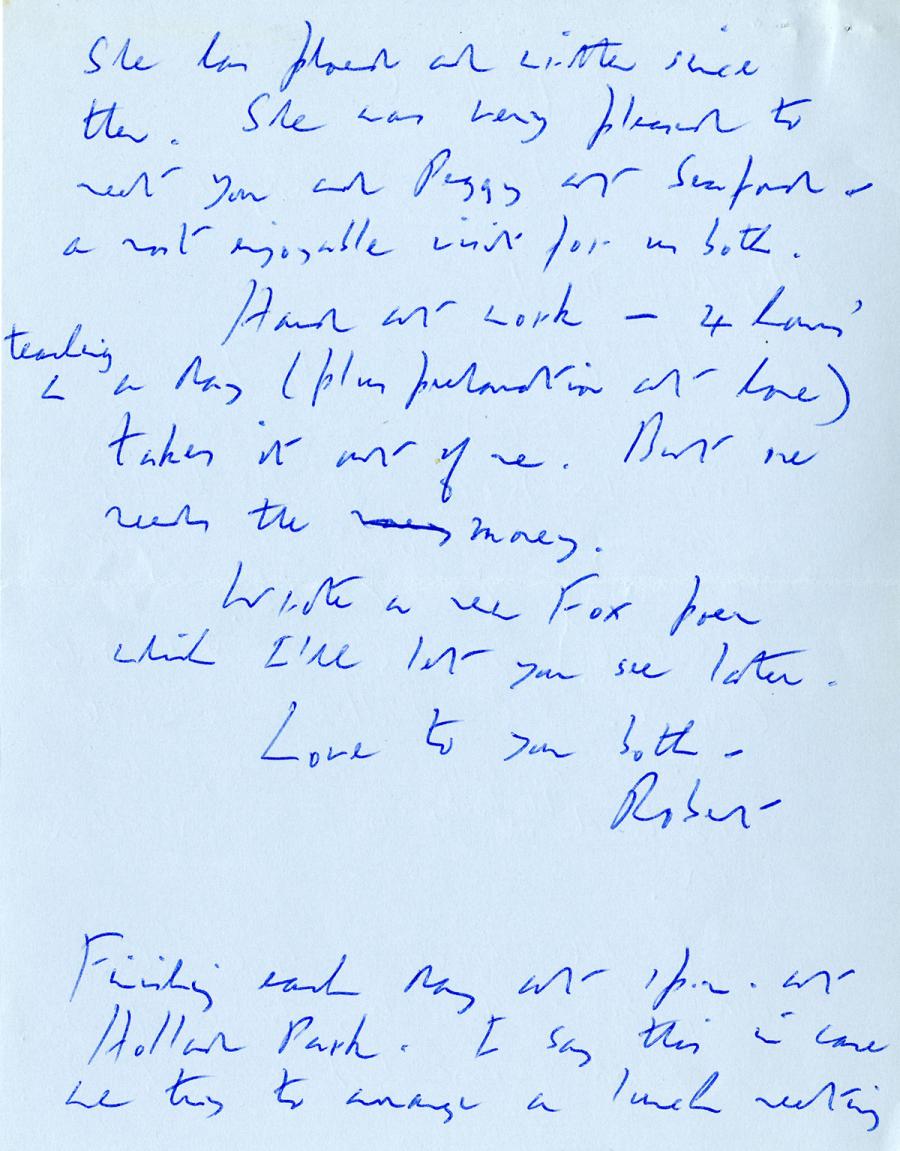 She has phoned and written since
then. She was very pleased to
meet you and Peggy at Seaford -
a most enjoyable visit for us both.
Hard at work — 4 hours'
teaching
a day (plus preparation at home)
takes it out of me. But one
needs the money.
Wrote a new Fox poem
which I'll let you see later.
Love to you both -
Robert
Finishing each day at 1 p.m. at
Holland Park. I say this in case
we try to arrange a lunch meeting